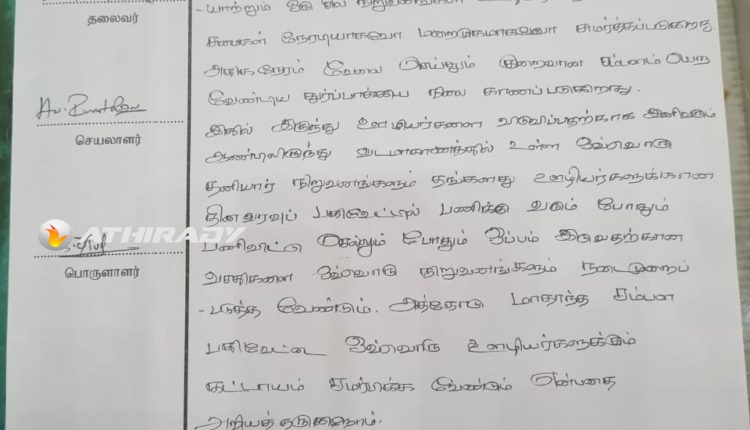 தலைவர்
Au. Bmathan
செயலாளர்
ATHIRADY
பொருளாளர்
- யாற்றும் ஒரு சில நிறுவனங்களில்
சுமைகள் நேரடியாகவோ மறைமுகமாகவோ சுமர்த்தப்படுகிறது.
அதிக நேரம் வேலை செய்தும் குறைவான சம்பளம் பெற
வேண்டிய துர்ப்பாக்கிய நிலை காணப்படுகிறது.
இதில் இருந்து ஊழியர்களை விடுவிப்பதற்காக இனிவரும்
ஆண்டிலிருந்து வடமாகாணத்தில் உள்ள ஒவ்வொரு
தனியார் நிறுவனங்களும் தங்களது ஊழியர்களுக்கான
தினவரவுப் பதிவேட்டில் பணிக்கு வரும் போதும்
பணிவிட்டு செல்லும் போதும் ஒப்பம் இடுவதற்கான
வசதிகளை ஒவ்வொரு நிறுவனங்களும் நடைமுறைப்
- படுத்த வேண்டும். அத்தோடு மாதாந்த சம்பள
பதிவேட்டை ஒவ்வொரு ஊழியர்களுக்கும்
கட்டாயம் சமர்பிக்க வேண்டும் என்பதை
அறியத் தருகின்றோம்.